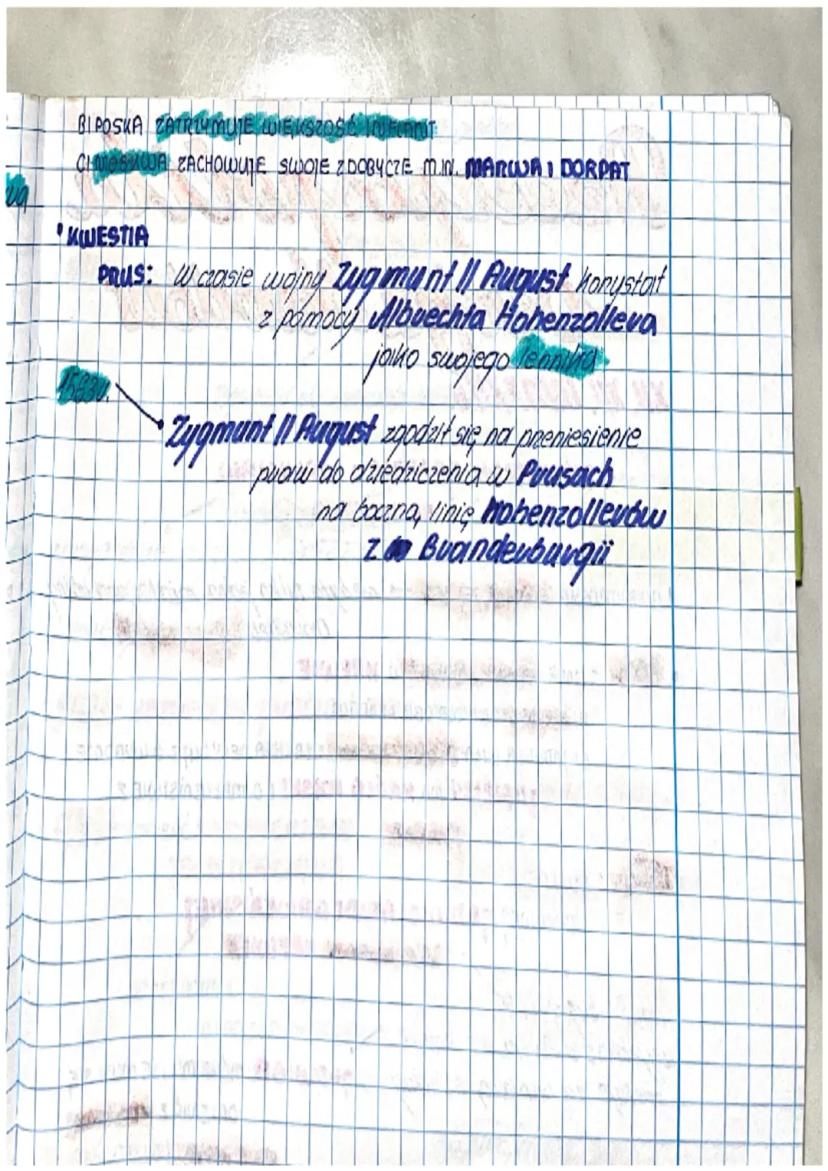 B) POSKA ZATRZYMUJE WIĘKSZOŚĆ INFLANT
C) MOSKWA ZACHOWUJE SWOJE ZDOBYCZE M.IN. MARWA I DORPAT
• KWESTIA
PRUS: W czasie wojny Zygmunt II August korzystał
z pomocy Albrechta Hohenzollera
jako swojego lennika
1563r.
Zygmunt II August zgodził się na przeniesienie
praw do dziedziczenia w Prusach
na boczną linię Hohenzollerów
z Brandenburgii